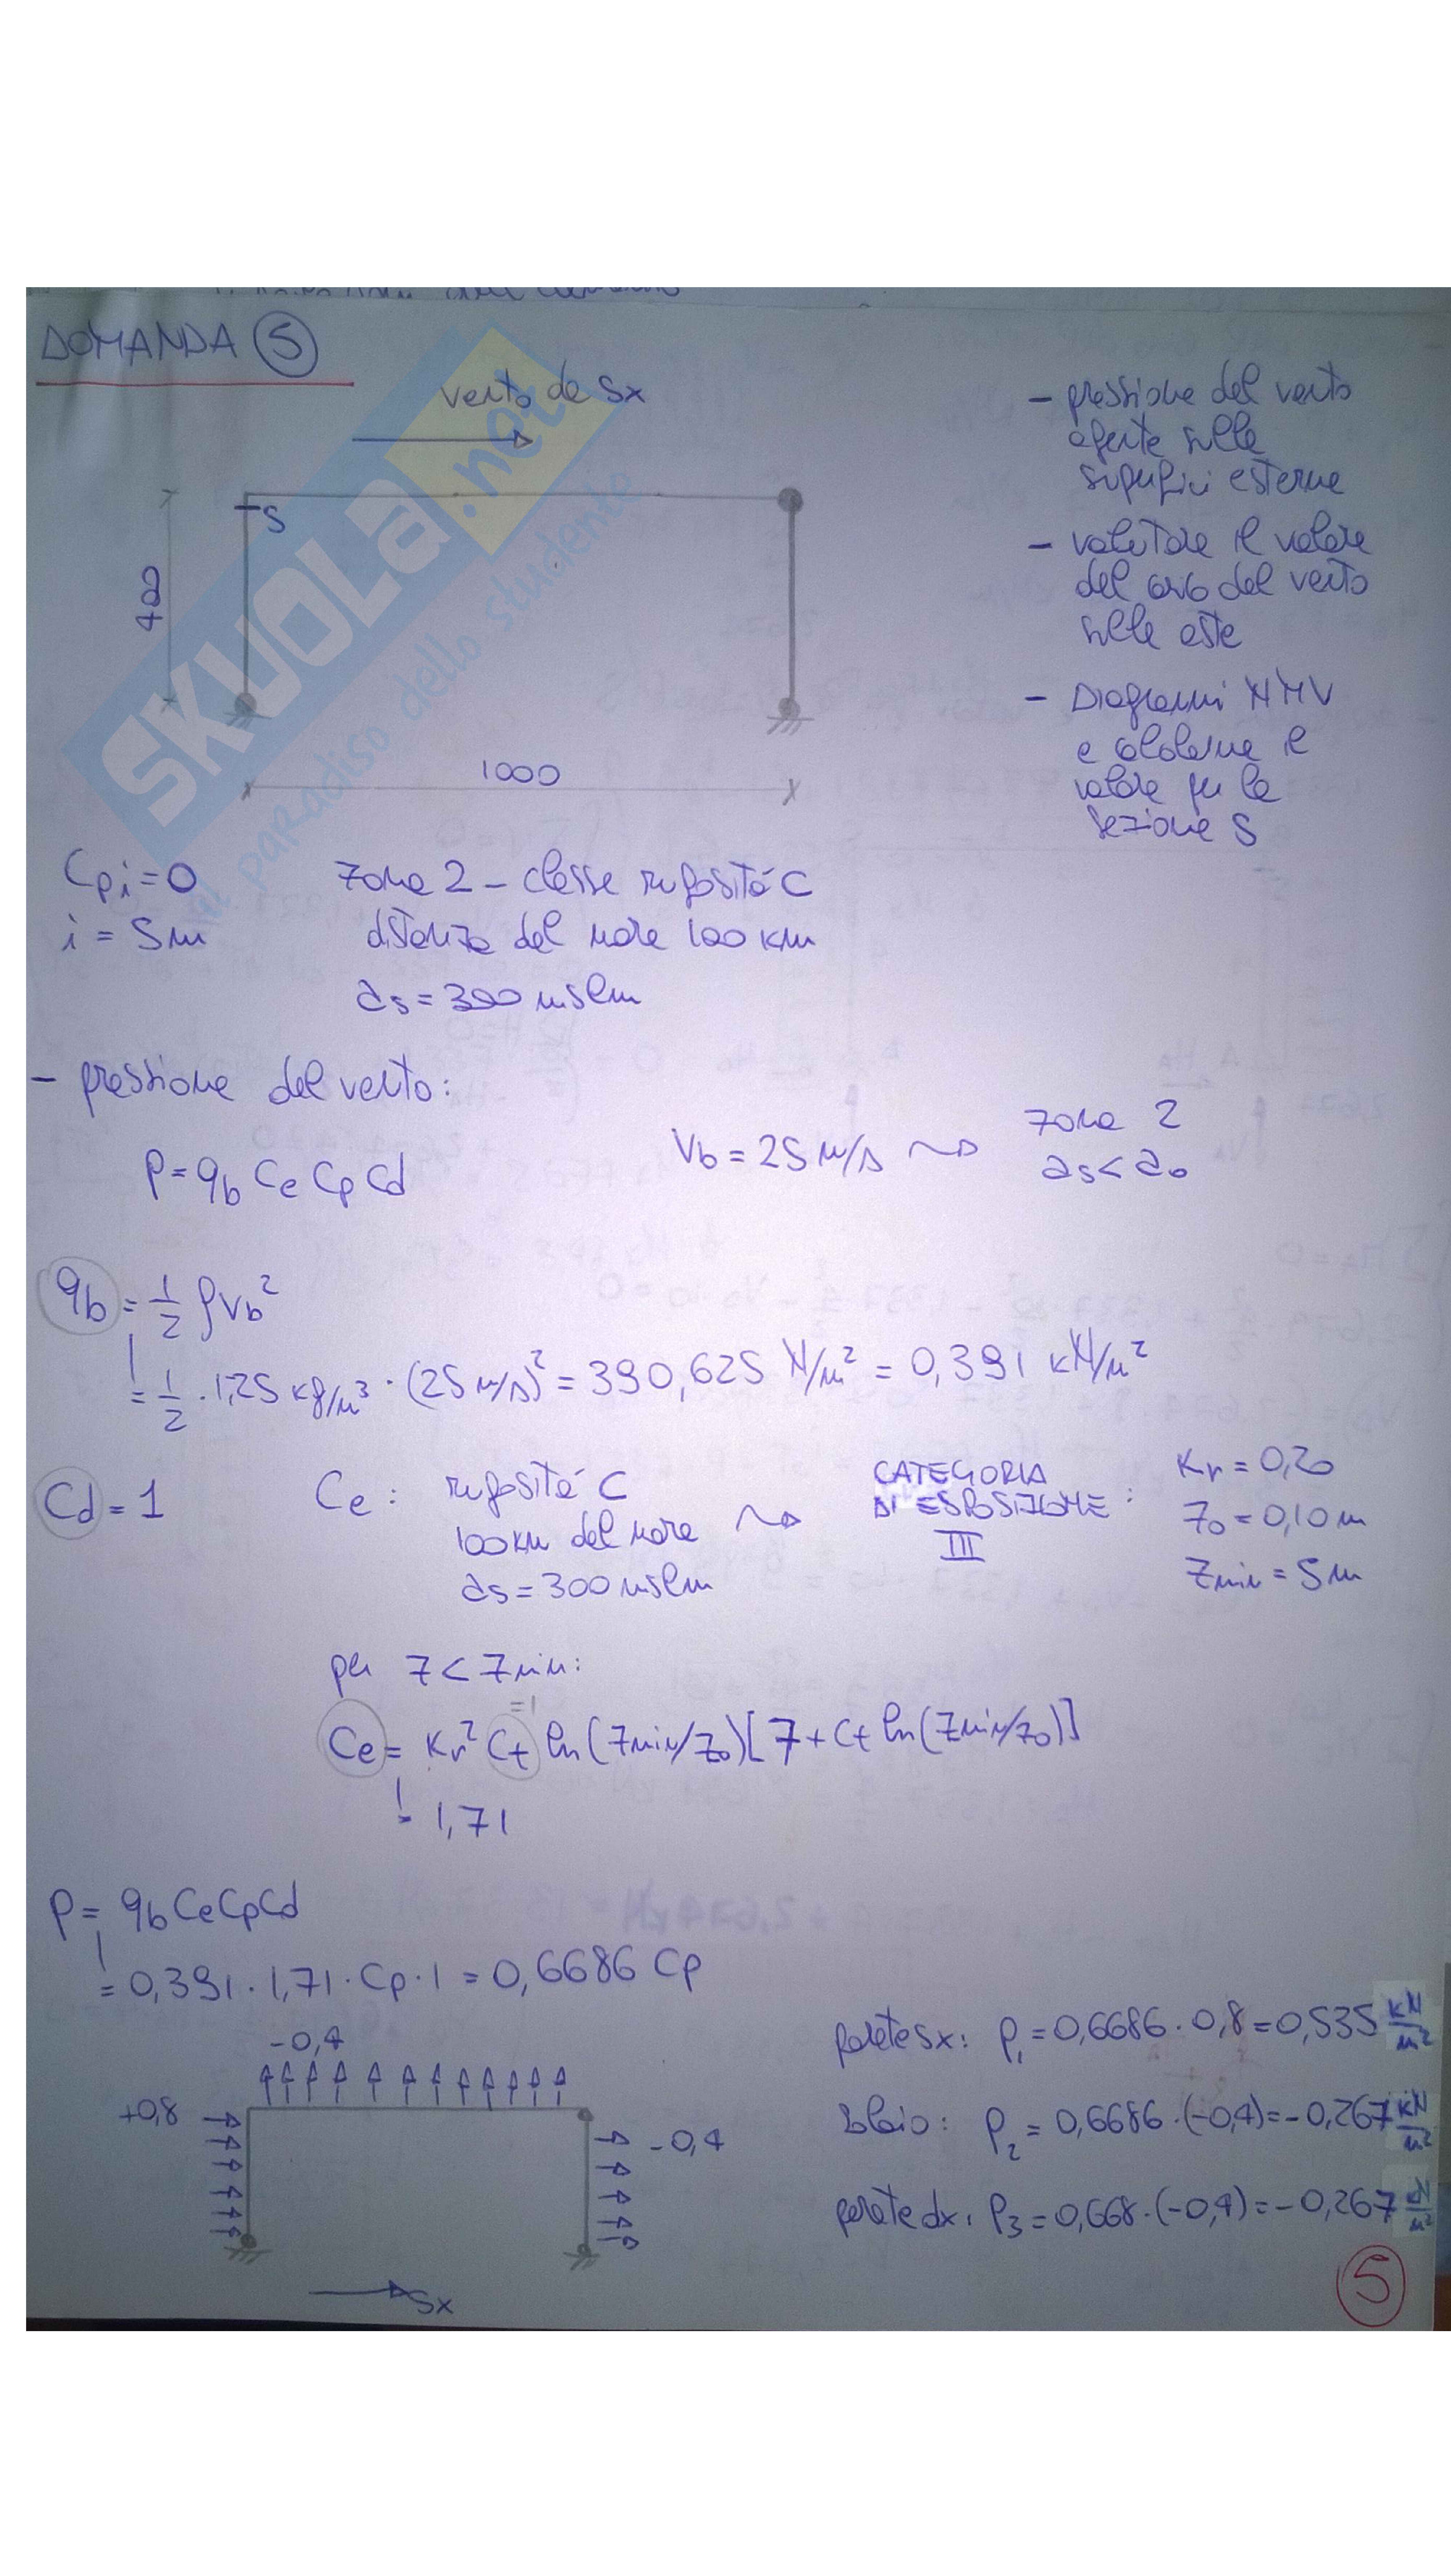 DOMANDA 5
vento da Sx
S
400
1000
- pressione del vento
agente sulle
superfici esterne
- valutare il valore
del carico del vento
sulle aste
- Diagrammi NMV
e calcolarne il
valore per la
sezione S
SKUOLA.net
il paradiso dello studente
Cpi=0
i = 5m
zona 2 - classe rugosità C
distanza dal mare 100 km
as = 300 mslm
- pressione del vento:
p = qb Ce Cp Cd
Vb = 25 m/s
zona 2
as < a0
qb = 1/2 ρVb²
= 1/2 · 1,25 kg/m³ · (25 m/s)² = 390,625 N/m² = 0,391 kN/m²
Cd = 1
Ce : rugosità C
100 km dal mare
as = 300 mslm
CATEGORIA
DI ESPOSIZIONE :
III
Kr = 0,20
z0 = 0,10 m
zmin = 5m
per z < zmin:
=1
Ce = Kr² Ct ln(zmin/z0)[7+Ct ln(zmin/z0)]
1,71
p = qb Ce Cp Cd
= 0,391 · 1,71 · Cp · 1 = 0,6686 Cp
-0,4
+0,8
-0,4
Sx
parete sx: p1 = 0,6686 · 0,8 = 0,535 kN/m²
solaio: p2 = 0,6686 · (-0,4) = -0,267 kN/m²
parete dx: p3 = 0,668 · (-0,4) = -0,267 kN/m²
5